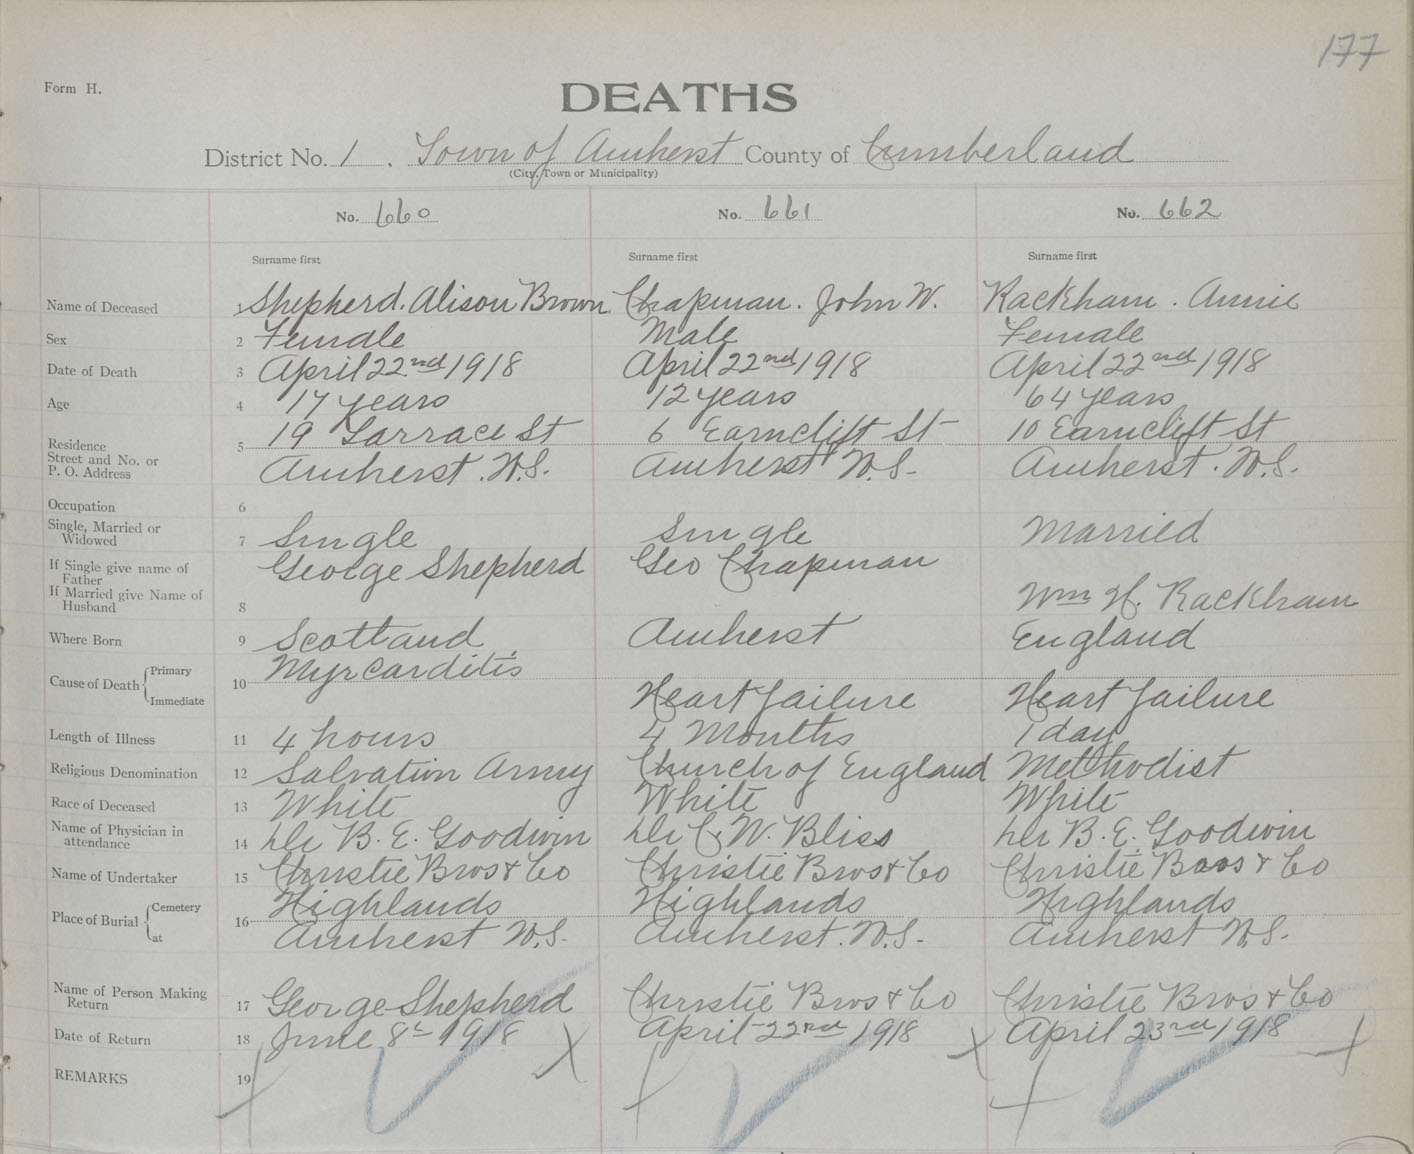 177
Form H.
DEATHS
District No. 1. Town of Amherst County of Cumberland
(City, Town or Municipality)
No. 660 No. 661 No. 662
Surname first Surname first Surname first
Name of Deceased 1 Shepherd. Alison Brown Chapman. John W. Rackham. Annie
Sex 2 Female Male Female
Date of Death 3 April 22nd 1918 April 22nd 1918 April 22nd 1918
Age 4 17 years 12 years 64 years
Residence 5 19 Tarrace St 6 Earnclift St 10 Earnclift St
Street and No. or
P. O. Address Amherst. N.S. Amherst N.S. Amherst. N.S.
Occupation 6
Single, Married or
Widowed 7 Single Single Married
If Single give name of
Father George Shepherd Geo Chapman
If Married give Name of
Husband 8 Wm H. Rackham
Where Born 9 Scotland Amherst England
Cause of Death 10 Primary Myrcarditis
Immediate Heart failure Heart failure
Length of Illness 11 4 hours 4 Months 1 day
Religious Denomination 12 Salvation Army Church of England Methodist
Race of Deceased 13 White White White
Name of Physician in
attendance 14 Dr B. E. Goodwin Dr C. W. Bliss Dr B. E. Goodwin
Name of Undertaker 15 Christie Bros & Co Christie Bros & Co Christie Bros & Co
Place of Burial 16 Cemetery Highlands Highlands Highlands
at Amherst N.S. Amherst. N.S. Amherst N.S.
Name of Person Making
Return 17 George Shepherd Christie Bros & Co Christie Bros & Co
Date of Return 18 June 8th 1918 April 22nd 1918 April 23rd 1918
REMARKS 19